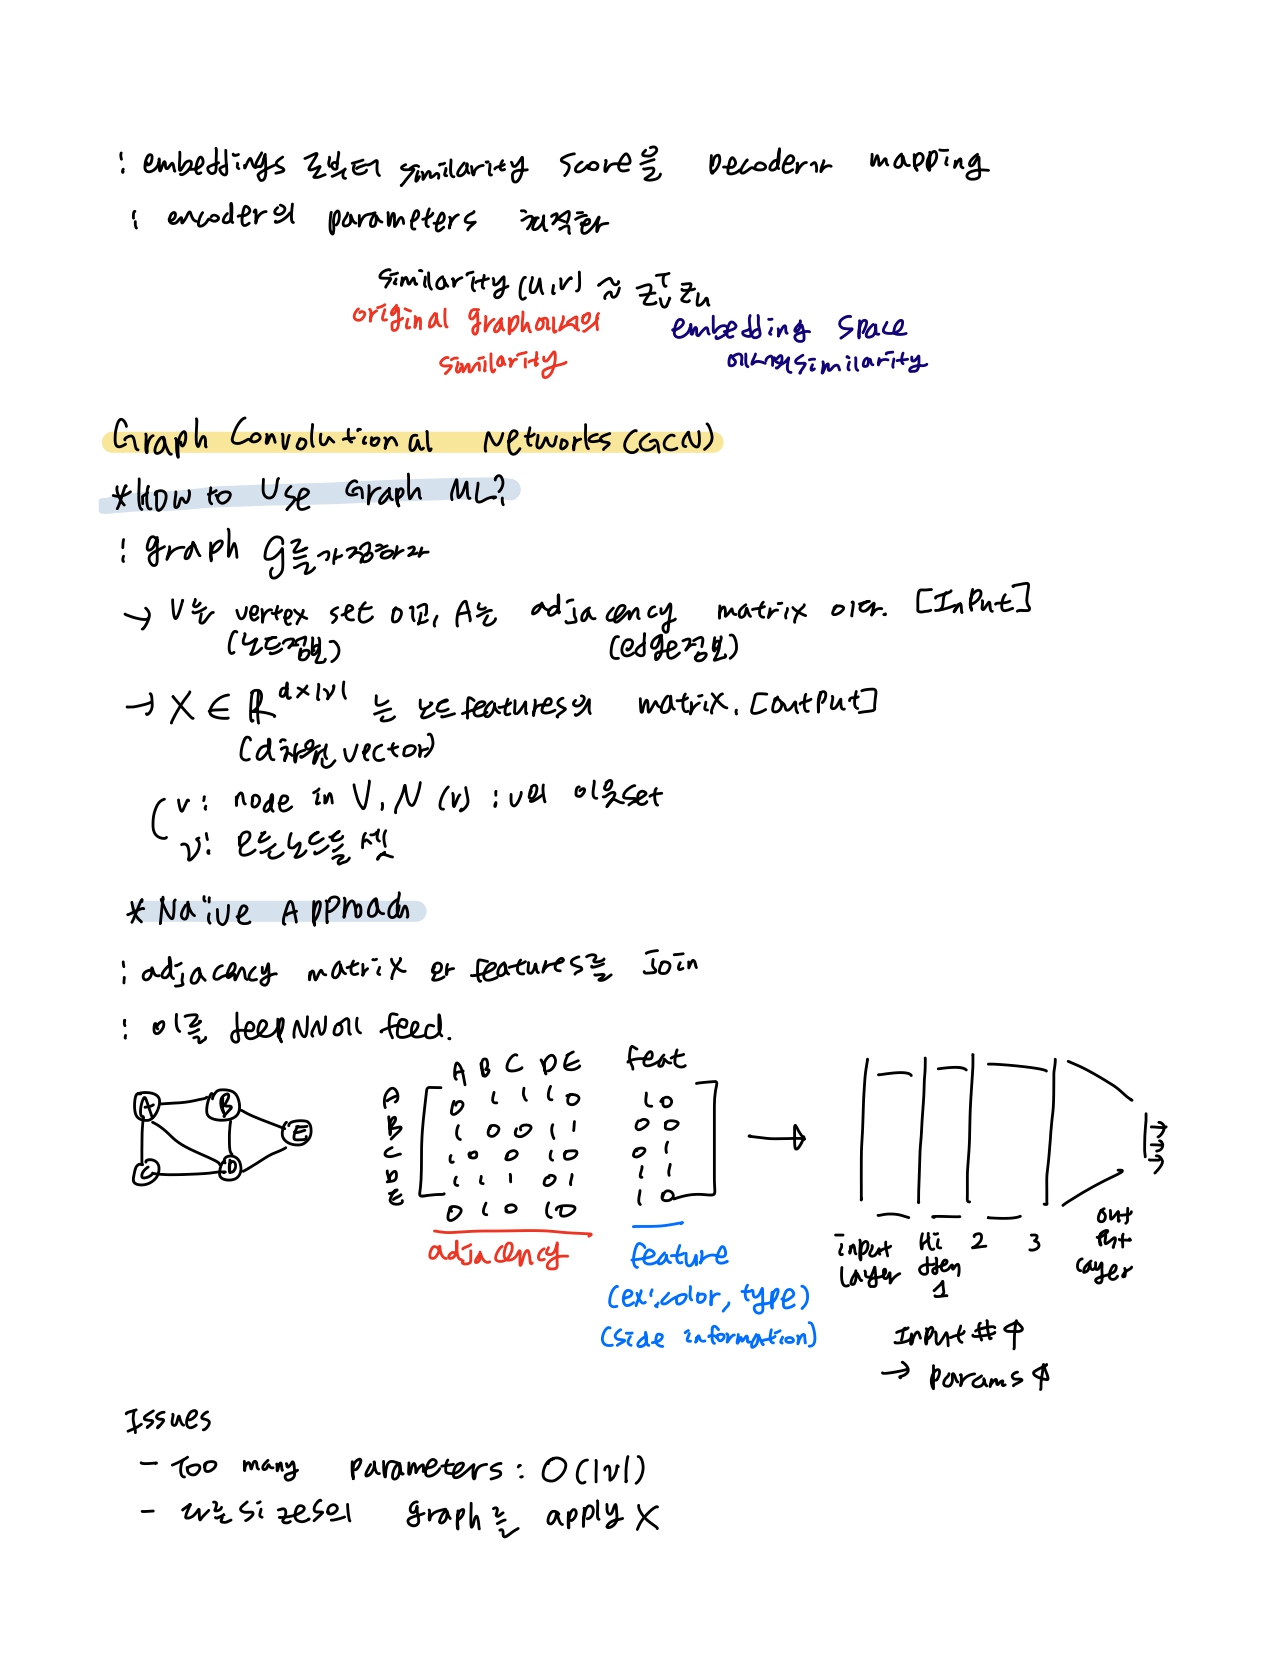 : embeddings 로부터 similarity score을 Decoder가 mapping
: encoder의 parameters 최적화
similarity (u,v) ≈ z_v^T z_u
original graph에서의 similarity
embedding space 에서의 similarity
Graph Convolutional Networks (GCN)
* How to Use Graph ML?
: graph G를 가정하자
→ V는 vertex set 이고, A는 adjacency matrix 이다. [Input]
(노드정보) (edge정보)
→ X ∈ R^{d×|V|} 는 노드 features의 matrix. [output]
(d차원 vector)
v: node in V, N(v) : v의 이웃 set
V: 모든 노드들 셋
* Naïve Approach
: adjacency matrix 와 features를 Join
: 이를 deep NN에 feed.
A B C D E feat
A 0 1 1 1 0 1 0
B 1 0 0 1 1 0 0
C 1 0 0 1 0 0 1
D 1 1 1 0 1 1 1
E 0 1 0 1 0 1 0
A B E C D
adjacency
feature
(ex:color, type)
(side information)
input layer
Hidden 1
2
3
output layer
Input # ↑
→ params ↑
Issues
- Too many parameters : O(|V|)
- 다른 sizes의 graph를 apply X